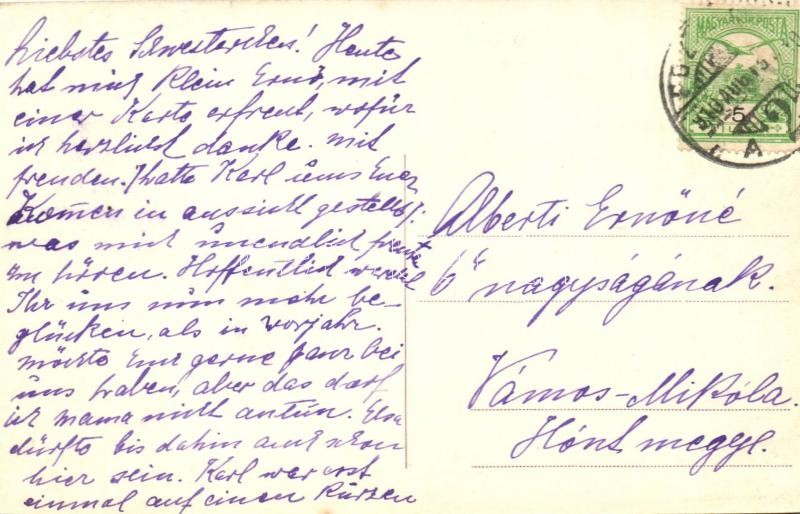 Liebstes Schwesterchen! Heute
hat mich Klein Ernö, mit
einer Karte erfreut, wofür
ich herzlichst danke. Mit
freuden. /hatte Karl uns Euer
Kom̄en in aussicht gestellt/.
was mich unendlich freute
zu hören. Hoffentlich werdet
Ihr uns nun mehr be-
glücken, als in Vorjahr.
möchte Euch gerne ganz bei
uns haben, aber das darf
ich mama nicht antun. Elsa
dürfte bis dahin auch schon
hier sein. Karl war erst
einmal auf einen kurzen
MAGYAR KIR. POSTA
5
Alberti Ernőné
ő nagyságának.
Vámos-Mikola.
Hont megye.